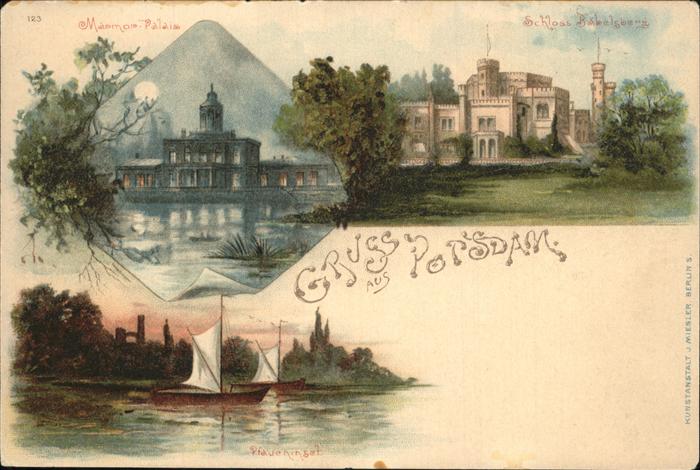 123
Marmor-Palais
Schloss Babelsberg
GRUSS
AUS
POTSDAM.
Pfaueninsel
KUNSTANSTALT J. MIESLER, BERLIN S.